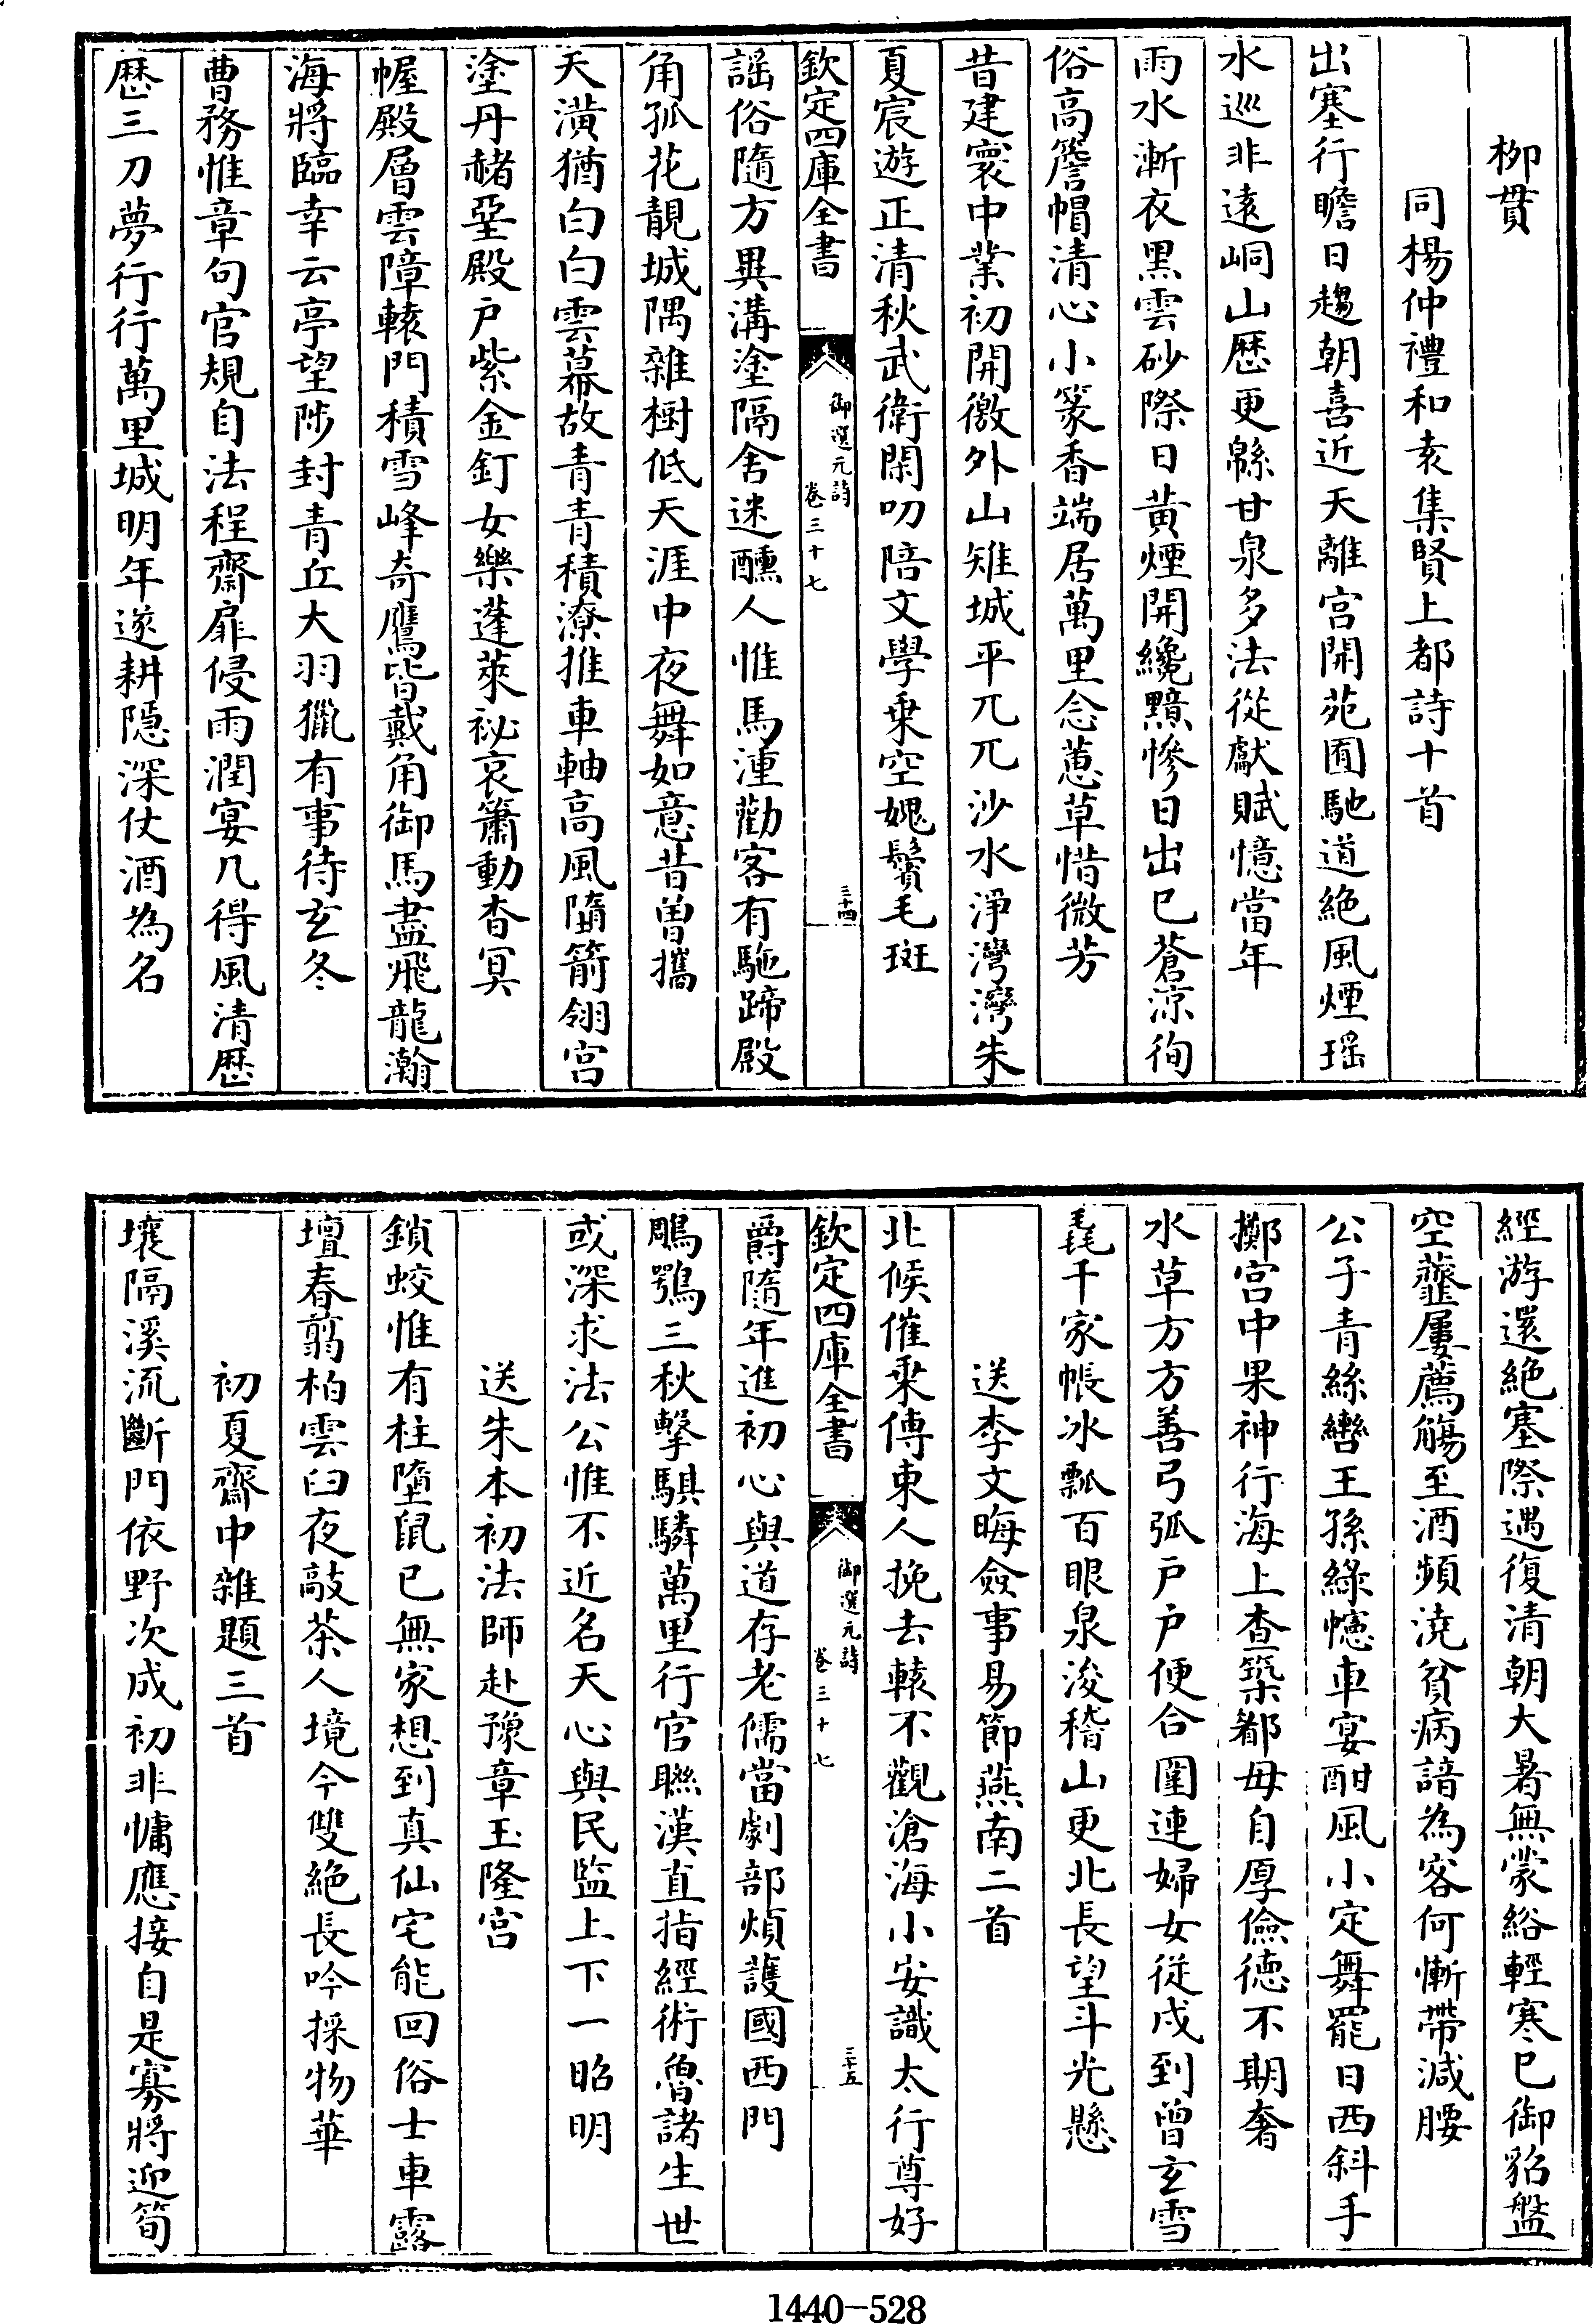 柳貫
同楊仲禮和袁集賢上都詩十首
出塞行瞻日趨朝喜近天離宮開苑囿馳道絶風煙瑶
水巡非遠峒山歴更緜甘泉多法從獻賦憶當年
雨水漸衣黑雲砂際日黄煙開纔黯慘日出已蒼涼徇
俗高簷帽清心小篆香端居萬里念蕙草惜微芳
昔建寰中業初開徼外山雉城平兀兀沙水淨灣灣朱
夏宸遊正清秋武衛閑叨陪文學乗空媿鬢毛斑
欽定四庫全書
御選元詩
卷三十七
三十四
謡俗隨方異溝塗隔舍迷醺人惟馬湩勸客有駞蹄殿
角孤花靚城隅雜樹低天涯中夜舞如意昔曽攜
天潢猶白白雲幕故青青積潦推車軸高風隨箭翎宫
塗丹赭堊殿户紫金釘女樂蓬萊祕哀簫動杳冥
幄殿層雲障轅門積雪峰奇鷹皆戴角御馬盡飛龍瀚
海將臨幸云亭望陟封青丘大羽獵有事待玄冬
曹務惟章句官規自法程齋扉侵雨潤宴几得風清歴
歴三刀夢行行萬里城明年遂耕隱深仗酒為名
經游還絶塞際遇復清朝大暑無蒙綌輕寒已御貂盤
空虀屢薦觴至酒頻澆貧病諳為客何慚帶減腰
公子青絲轡王孫綠幰車宴酣風小定舞罷日西斜手
擲宫中果神行海上查築鄒毋自厚儉徳不期奢
水草方方善弓弧户户便合圍連婦女従戍到曽玄雪
毳千家帳冰瓢百眼泉浚稽山更北長望斗光懸
送李文晦僉事易節燕南二首
北候催乗傳東人挽去轅不觀滄海小安識太行尊好
欽定四庫全書
御選元詩
卷三十七
三十五
爵隨年進初心與道存老儒當劇部煩護國西門
鵰鶚三秋擊騏驎萬里行官聯漢直指經術魯諸生世
或深求法公惟不近名天心與民監上下一昭明
送朱本初法師赴豫章玉隆宫
鎖蛟惟有柱墮鼠已無家想到真仙宅能回俗士車露
壇春翦柏雲臼夜敲茶人境今雙絶長吟採物華
初夏齋中雜題三首
壤隔溪流斷門依野次成初非慵應接自是寡將迎筍
1440—528